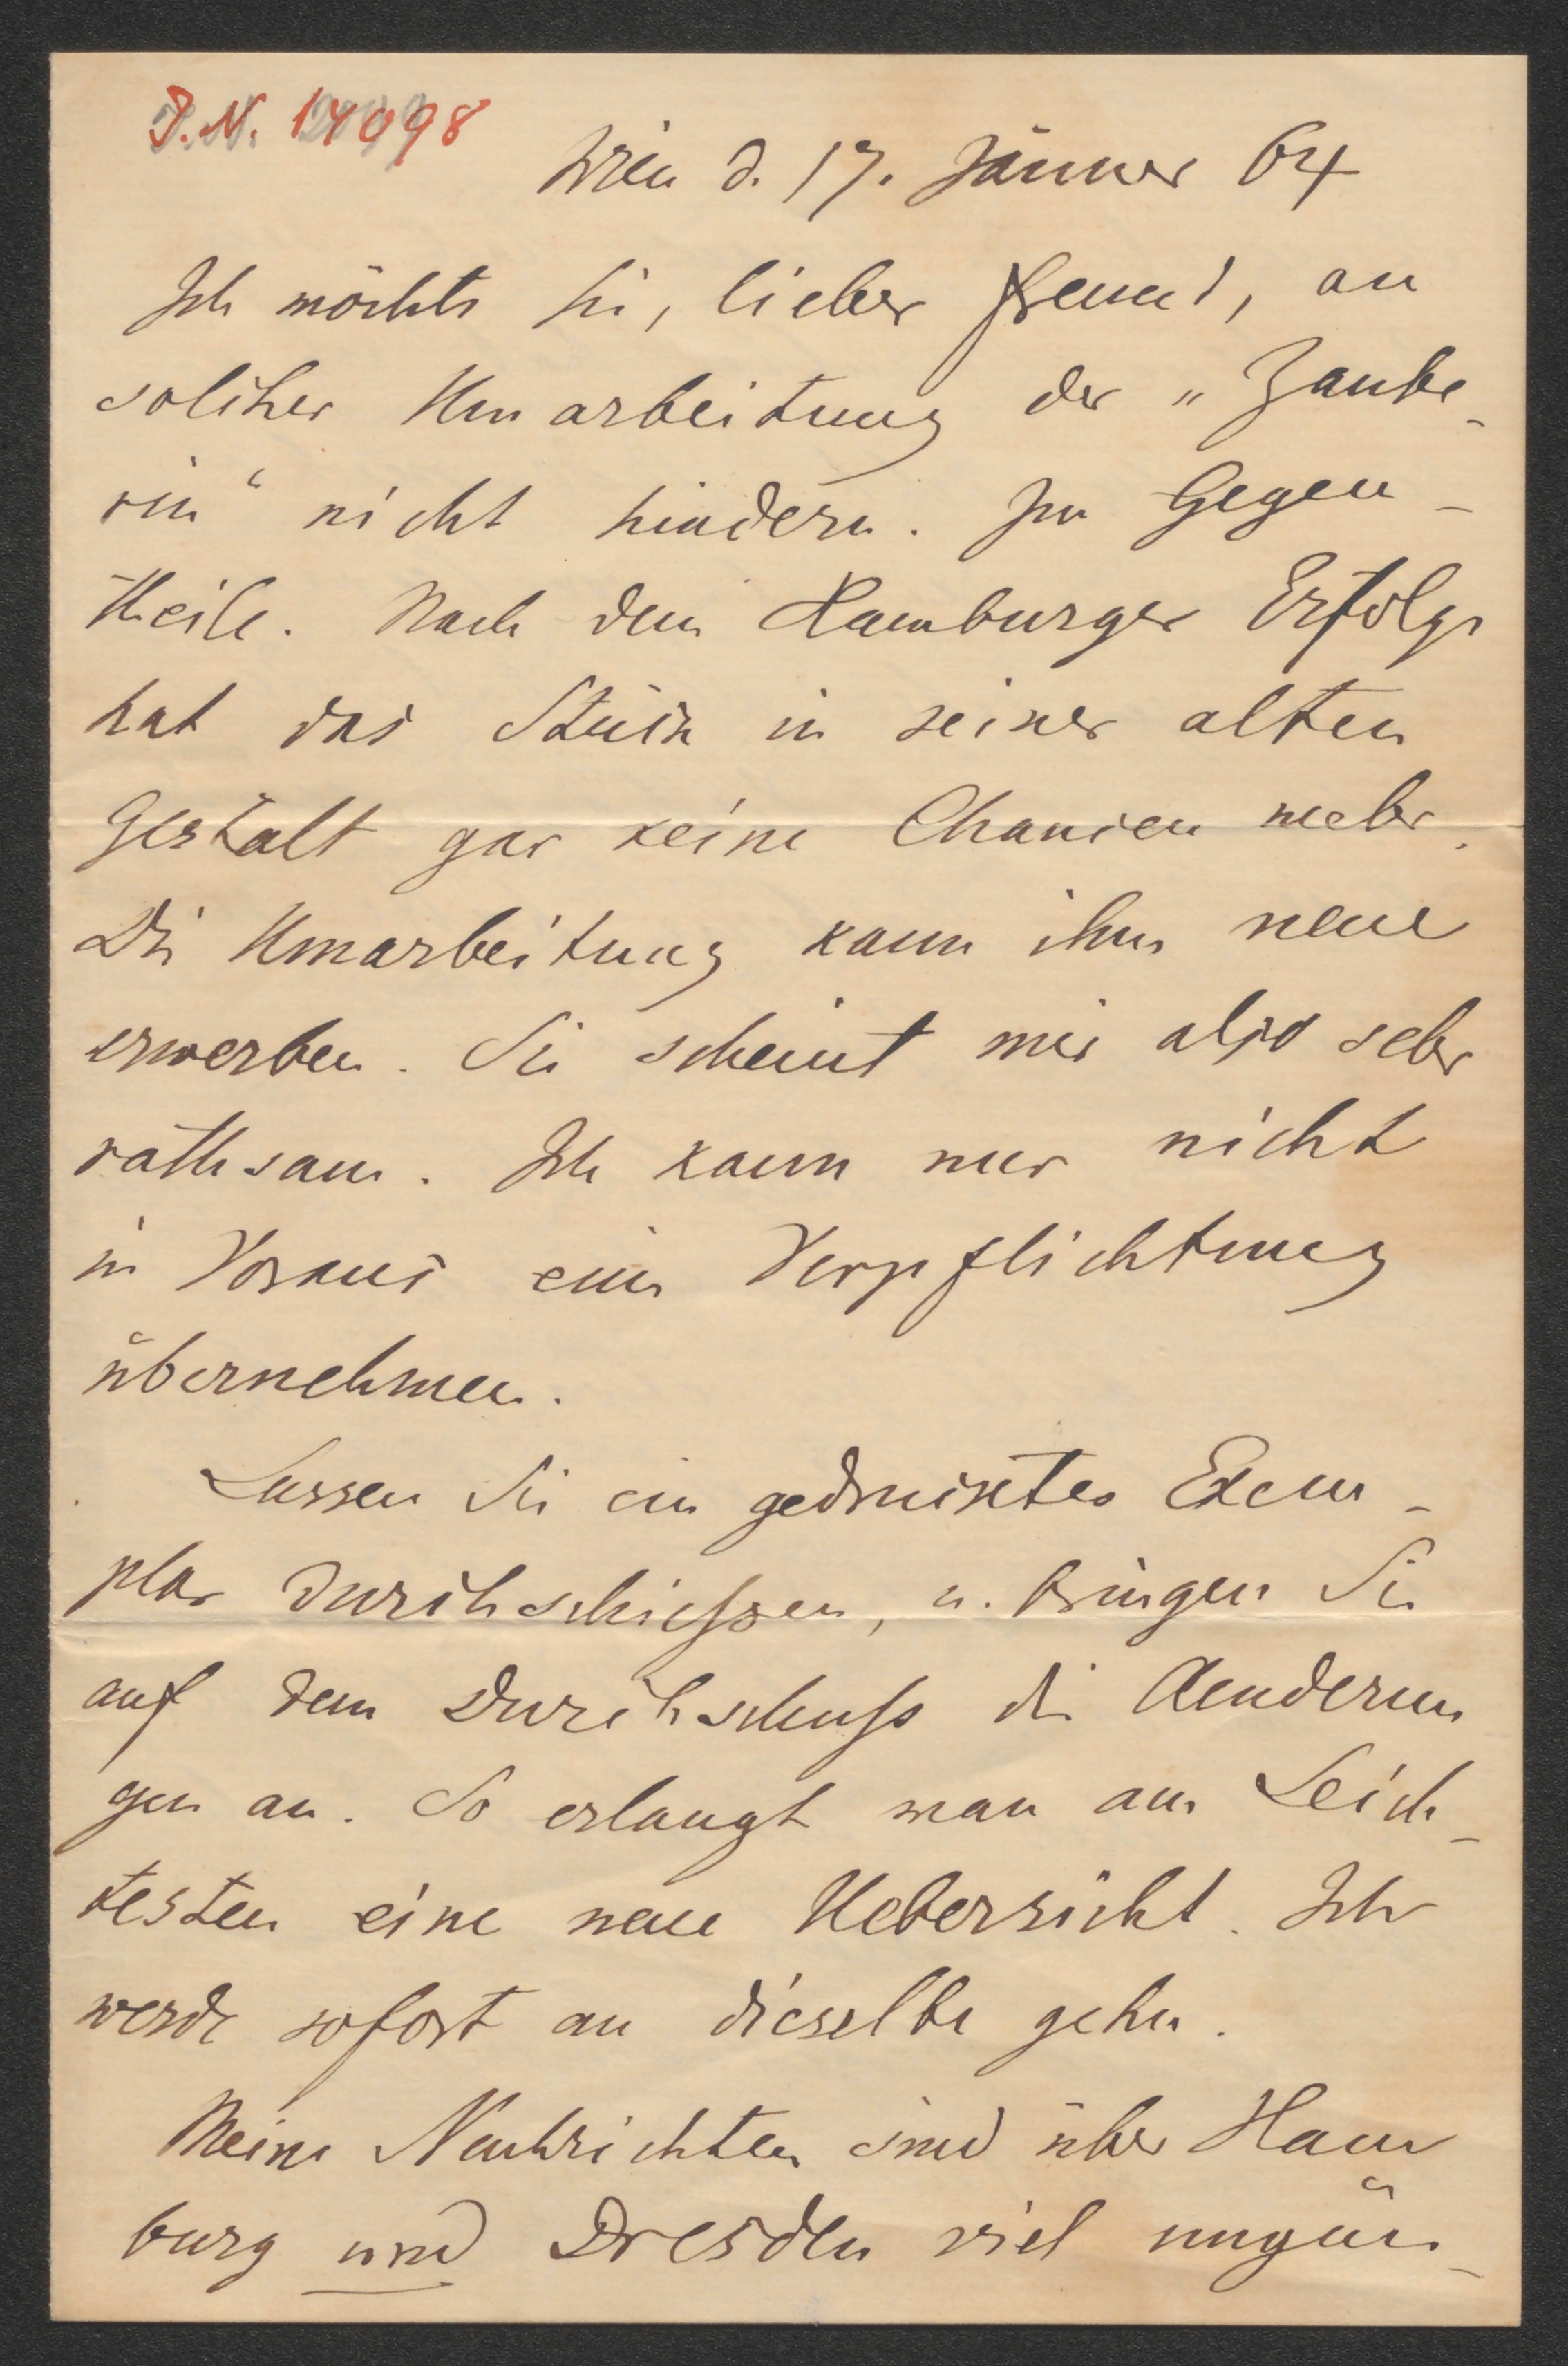 J.N. 14098
Wien d. 17. Jänner 64
Ich möchte Sie, lieber Freund, an
solcher Umarbeitung der „Zaube-
rin“ nicht hindern. Im Gegen-
theile. Nach dem Hamburger Erfolge
hat das Stück in seiner alten
Gestalt gar keine Chancen mehr.
Die Umarbeitung kann ihm neue
erwerben. Sie scheint mir also sehr
räthsam. Ich kann nur nicht
im Voraus eine Verpflichtung
übernehmen.
Lassen Sie ein gedrucktes Exem-
plar durchschießen, u. bringen Sie
auf dem Durchschuß die Aenderun
gen an. So erlangt man am Leich-
testen eine neue Uebersicht. Ich
werde sofort an dieselbe gehn.
Meine Nachrichten sind über Ham
burg und Dresden viel ungün-